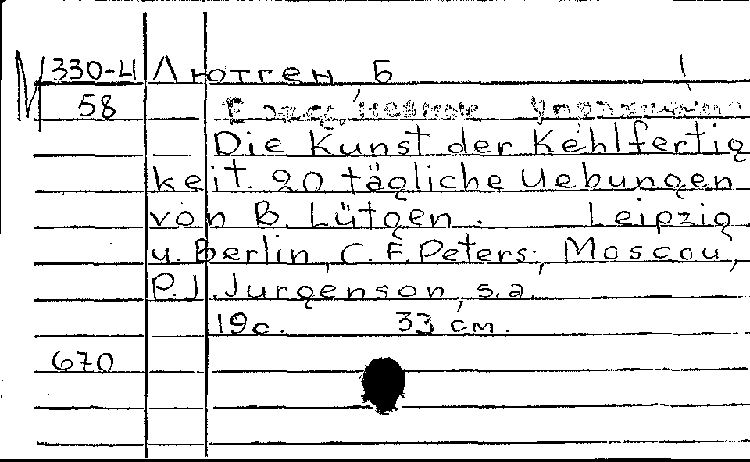 М 330-4 Лютген, Б
58 Ежедневные упражнения
Die Kunst der Kehlfertig
keit. 20 tägliche Uebungen
von B. Lütgen. Leipzig
u. Berlin, C. F. Peters; Moscou,
P. J. Jurgenson, s.a.
19c. 33 см.
670